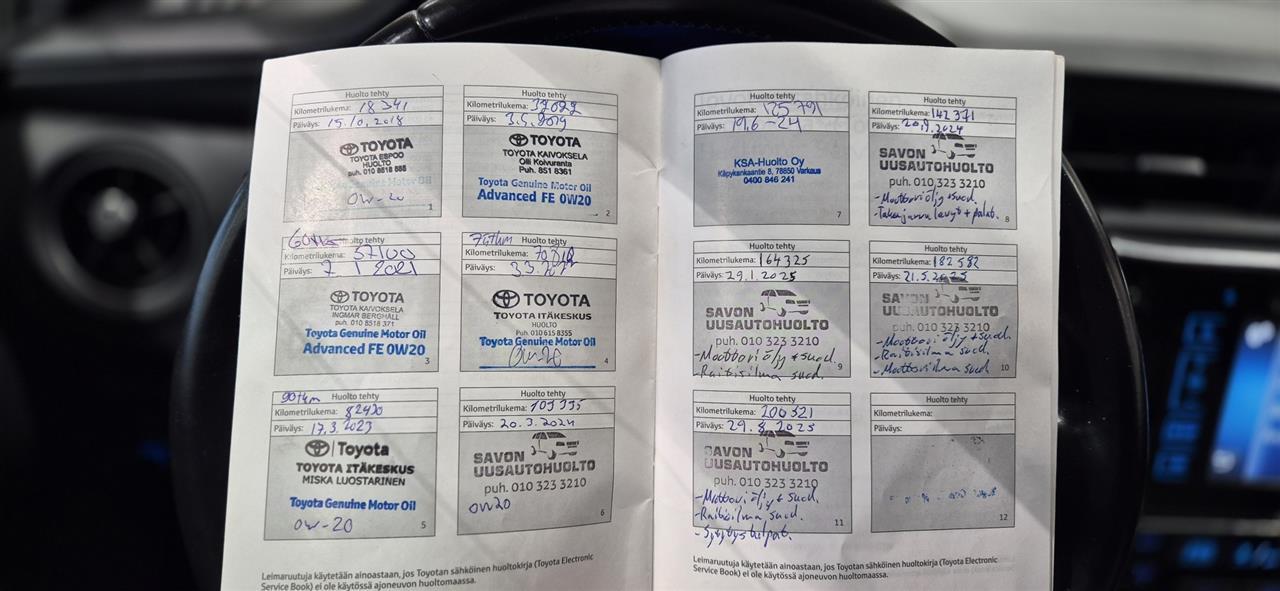 Huolto tehty
Kilometrilukema: 18341
Päiväys: 15.10.2018
TOYOTA
TOYOTA ESPOO
HUOLTO
puh. 010 8518 585
0W-20
1
Huolto tehty
Kilometrilukema: 37022
Päiväys: 3.5.2019
TOYOTA
TOYOTA KAIVOKSELA
Olli Koivuranta
Puh. 851 8361
Toyota Genuine Motor Oil
Advanced FE 0W20
2
Huolto tehty
Kilometrilukema: 57100
Päiväys: 7 1 2021
TOYOTA
TOYOTA KAIVOKSELA
INGMAR BERGHÄLL
puh. 010 8518 371
Toyota Genuine Motor Oil
Advanced FE 0W20
3
75tkm Huolto tehty
Kilometrilukema:
Päiväys:
TOYOTA
TOYOTA ITÄKESKUS
HUOLTO
Puh. 010 615 8355
Toyota Genuine Motor Oil
0W-20
4
90tkm Huolto tehty
Kilometrilukema: 82420
Päiväys: 17.3.2023
Toyota
TOYOTA ITÄKESKUS
MISKA LUOSTARINEN
Toyota Genuine Motor Oil
0W-20
5
Huolto tehty
Kilometrilukema: 103335
Päiväys: 20.3.2024
SAVON
UUSAUTOHUOLTO
puh. 010 323 3210
0W20
6
Leimaruutuja käytetään ainoastaan, jos Toyotan sähköinen huoltokirja (Toyota Electronic
Service Book) ei ole käytössä ajoneuvon huoltomaassa.
Huolto tehty
Kilometrilukema: 125791
Päiväys: 19.6-24
KSA-Huolto Oy
Käpykankaantie 8, 78850 Varkaus
0400 846 241
7
Huolto tehty
Kilometrilukema: 142371
Päiväys: 20.9.2024
SAVON
UUSAUTOHUOLTO
puh. 010 323 3210
-Moottoriöljy + suod.
-Takajarru levyt + palat.
8
Huolto tehty
Kilometrilukema: 164325
Päiväys: 29.1.2025
SAVON
UUSAUTOHUOLTO
puh. 010 323 3210
-Moottoriöljy + suod.
-Raitisilma suod.
9
Huolto tehty
Kilometrilukema: 182582
Päiväys: 21.5.2025
SAVON
UUSAUTOHUOLTO
puh. 010 323 3210
-Moottoriöljy + suod.
-Raitisilma suod.
-Moottorilma suod.
10
Huolto tehty
Kilometrilukema: 206321
Päiväys: 29.8.2025
SAVON
UUSAUTOHUOLTO
puh. 010 323 3210
-Moottoriöljy + suod.
-Raitisilma suod.
-Sytytystulpat.
11
Huolto tehty
Kilometrilukema:
Päiväys:
12
Leimaruutuja käytetään ainoastaan, jos Toyotan sähköinen huoltokirja (Toyota Electronic
Service Book) ei ole käytössä ajoneuvon huoltomaassa.